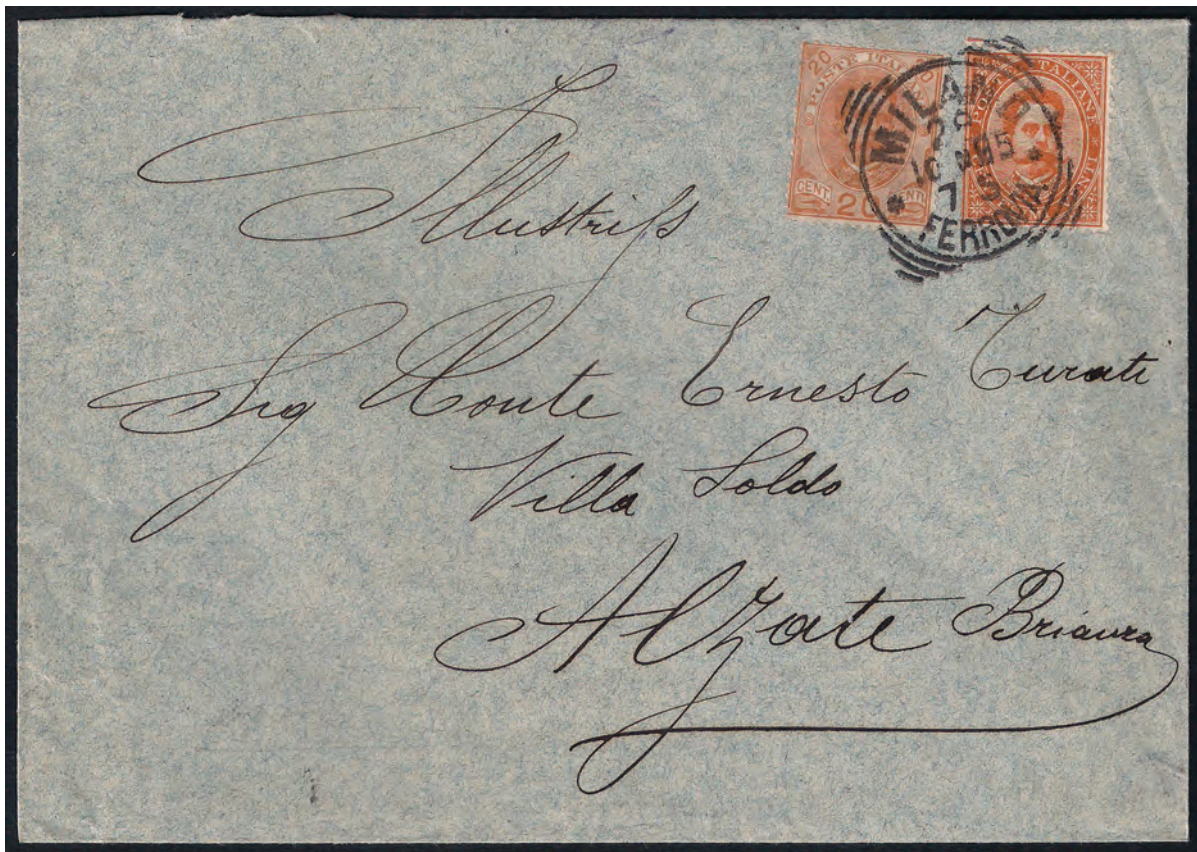 20 20
POSTE ITALIANE
CENT.
20
POSTE ITALIANE
MILANO
FERROVIA
Illustriss
Sig Conte Ernesto Turati
Villa Soldo
Alzate Brianza